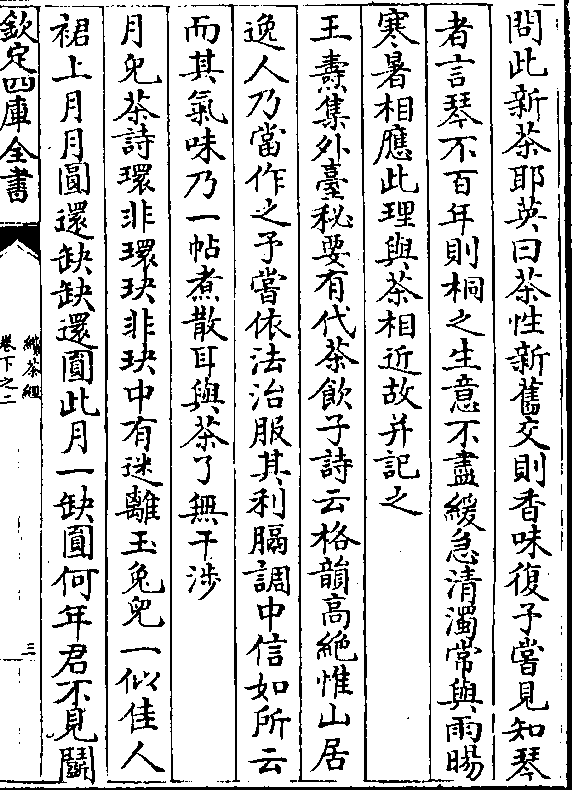 問此新茶耶英曰茶性新舊交則香味復予嘗見知琴
者言琴不百年則桐之生意不盡緩急清濁常與雨暘
寒暑相應此理與茶相近故并記之
王燾集外臺秘要有代茶飲子詩云格韻髙絶惟山居
逸人乃當作之予嘗依法治服其利膈調中信如所云
而其氣味乃一帖煮散耳與茶了無干涉
月兎茶詩環非環玦非玦中有迷離玉兎兒一似佳人
裙上月月圓還缺缺還圓此月一缺圓何年君不見鬭
欽定四庫全書
續茶經
卷下之二
三